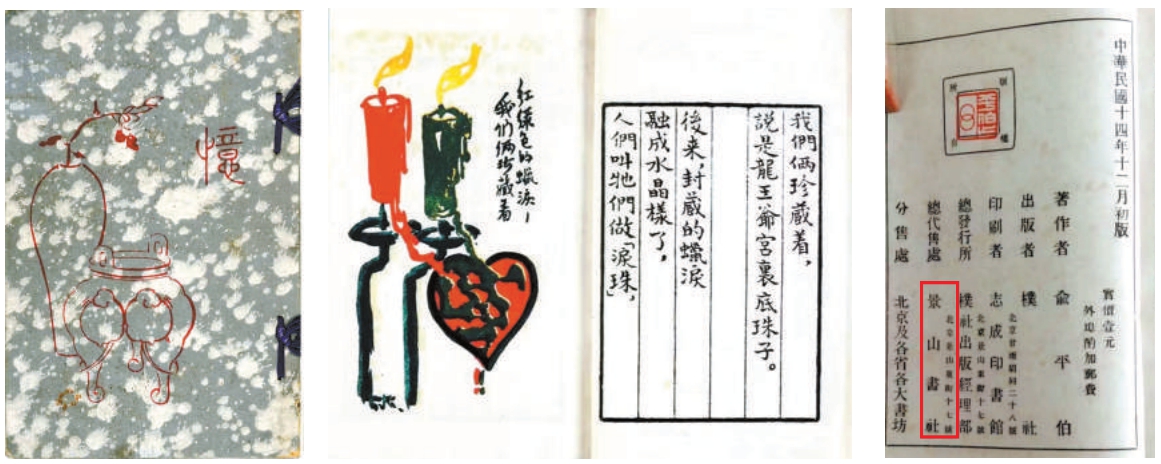 憶
紅綠色的蠟淚，
我们俩珍藏着
我們倆珍藏着，
說是龍王爺宮裏底珠子。
後来，封藏的蠟淚
融成水晶樣了，
人們叫牠們做「淚珠」，
中華民國十四年十二月初版
實價壹元
外埠酌加郵費
著作者 俞平伯
出版者 樸社
印刷者 志成印書館
北京景山東街十七號
總發行所 樸社出版經理部
北京景山東街十七號
總代售處 景山書社
分售處 北京及各省各大書坊